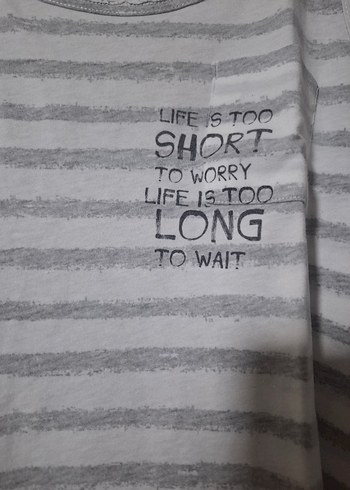 LIFE IS TOO
SHORT
TO WORRY
LIFE IS TOO
LONG
TO WAIT